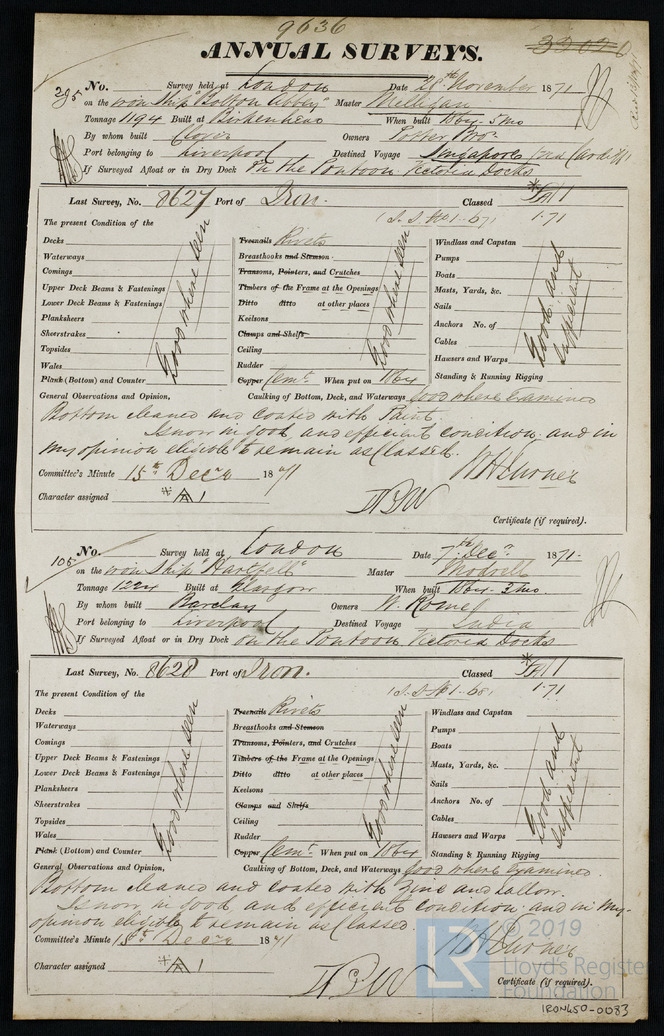 9636
33026
ANNUAL SURVEYS.
295 No. Survey held at London Date 28th November 1871
on the iron Ship "Bolton Abbey" Master Melligan
Tonnage 1194 Built at Birkenhead When built 1864 - 5 mo
By whom built Clover Owners Potter Bros
Port belonging to Liverpool Destined Voyage Singapore Cardiff
If Surveyed Afloat or in Dry Dock On the Pontoon Victoria Docks
Last Survey, No. 8627 Port of Iron. Classed A 1
1.71
The present Condition of the
Decks
Waterways
Comings
Upper Deck Beams & Fastenings
Lower Deck Beams & Fastenings
Planksheers
Sheerstrakes
Topsides
Wales
Plank (Bottom) and Counter
Good where seen
Treenails Rivets
Breasthooks and Stemson
Transoms, Pointers, and Crutches
Timbers of the Frame at the Openings
Ditto ditto at other places
Keelsons
Clamps and Shelfs
Ceiling
Rudder
Copper Cemt. When put on 1864
Good where seen
Windlass and Capstan
Pumps
Boats
Masts, Yards, &c.
Sails
Anchors No. of
Cables
Hawsers and Warps
Standing & Running Rigging
Good and sufficient
General Observations and Opinion, Caulking of Bottom, Deck, and Waterways Good where Examined
Bottom cleaned and coated with Paint.
Is now in good and efficient condition and in
my opinion eligible to remain as Classed.
Committee's Minute 15th Decr 1871
Character assigned A 1
Certificate (if required).
105 No. Survey held at London Date 7th Decr 1871.
on the iron Ship "Hartfell" Master
Tonnage 1224 Built at Glasgow When built 1864 - 3 mo.
By whom built Barclay Owners
Port belonging to Liverpool Destined Voyage India
If Surveyed Afloat or in Dry Dock On the Pontoon Victoria Docks
Last Survey, No. 8628 Port of Iron. Classed A 1
1.71
The present Condition of the
Decks
Waterways
Comings
Upper Deck Beams & Fastenings
Lower Deck Beams & Fastenings
Planksheers
Sheerstrakes
Topsides
Wales
Plank (Bottom) and Counter
Good where seen
Treenails Rivets
Breasthooks and Stemson
Transoms, Pointers, and Crutches
Timbers of the Frame at the Openings
Ditto ditto at other places
Keelsons
Clamps and Shelfs
Ceiling
Rudder
Copper Cemt. When put on 1864
Good where seen
Windlass and Capstan
Pumps
Boats
Masts, Yards, &c.
Sails
Anchors No. of
Cables
Hawsers and Warps
Standing & Running Rigging
Good and sufficient
General Observations and Opinion, Caulking of Bottom, Deck, and Waterways Good where Examined
Bottom cleaned and coated with Zinc and Tallow.
Is now in good and efficient condition and in my
opinion eligible to remain as Classed.
Committee's Minute 15th Decr 1871
Character assigned A 1
Certificate (if required).
© 2019
LR
Lloyd's Register
Foundation
IRON450-0083